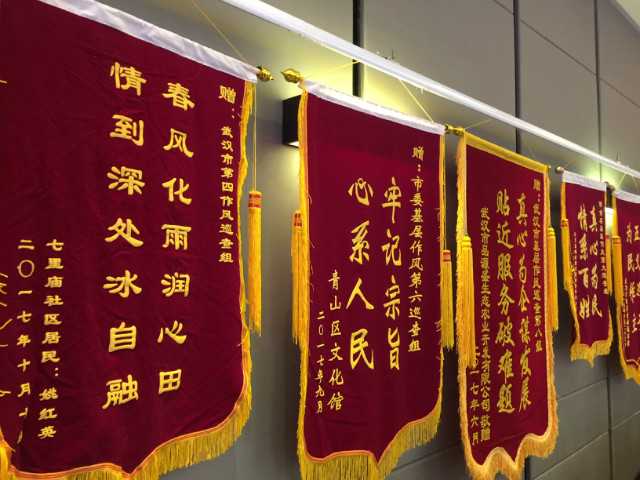 赠：武汉市第四作风巡查组
春风化雨润心田
情到深处冰自融
七里庙社区居民：姚红英
二〇一七年十月
赠：市委基层作风第六巡查组
牢记宗旨
心系人民
青山区文化馆
二〇一七年九月
赠：武汉市基层作风巡查第八组
真心为企谋发展
贴近服务破难题
武汉市品源基生态农业开发有限公司敬赠
二〇一七年六月
真心为民
情系百姓